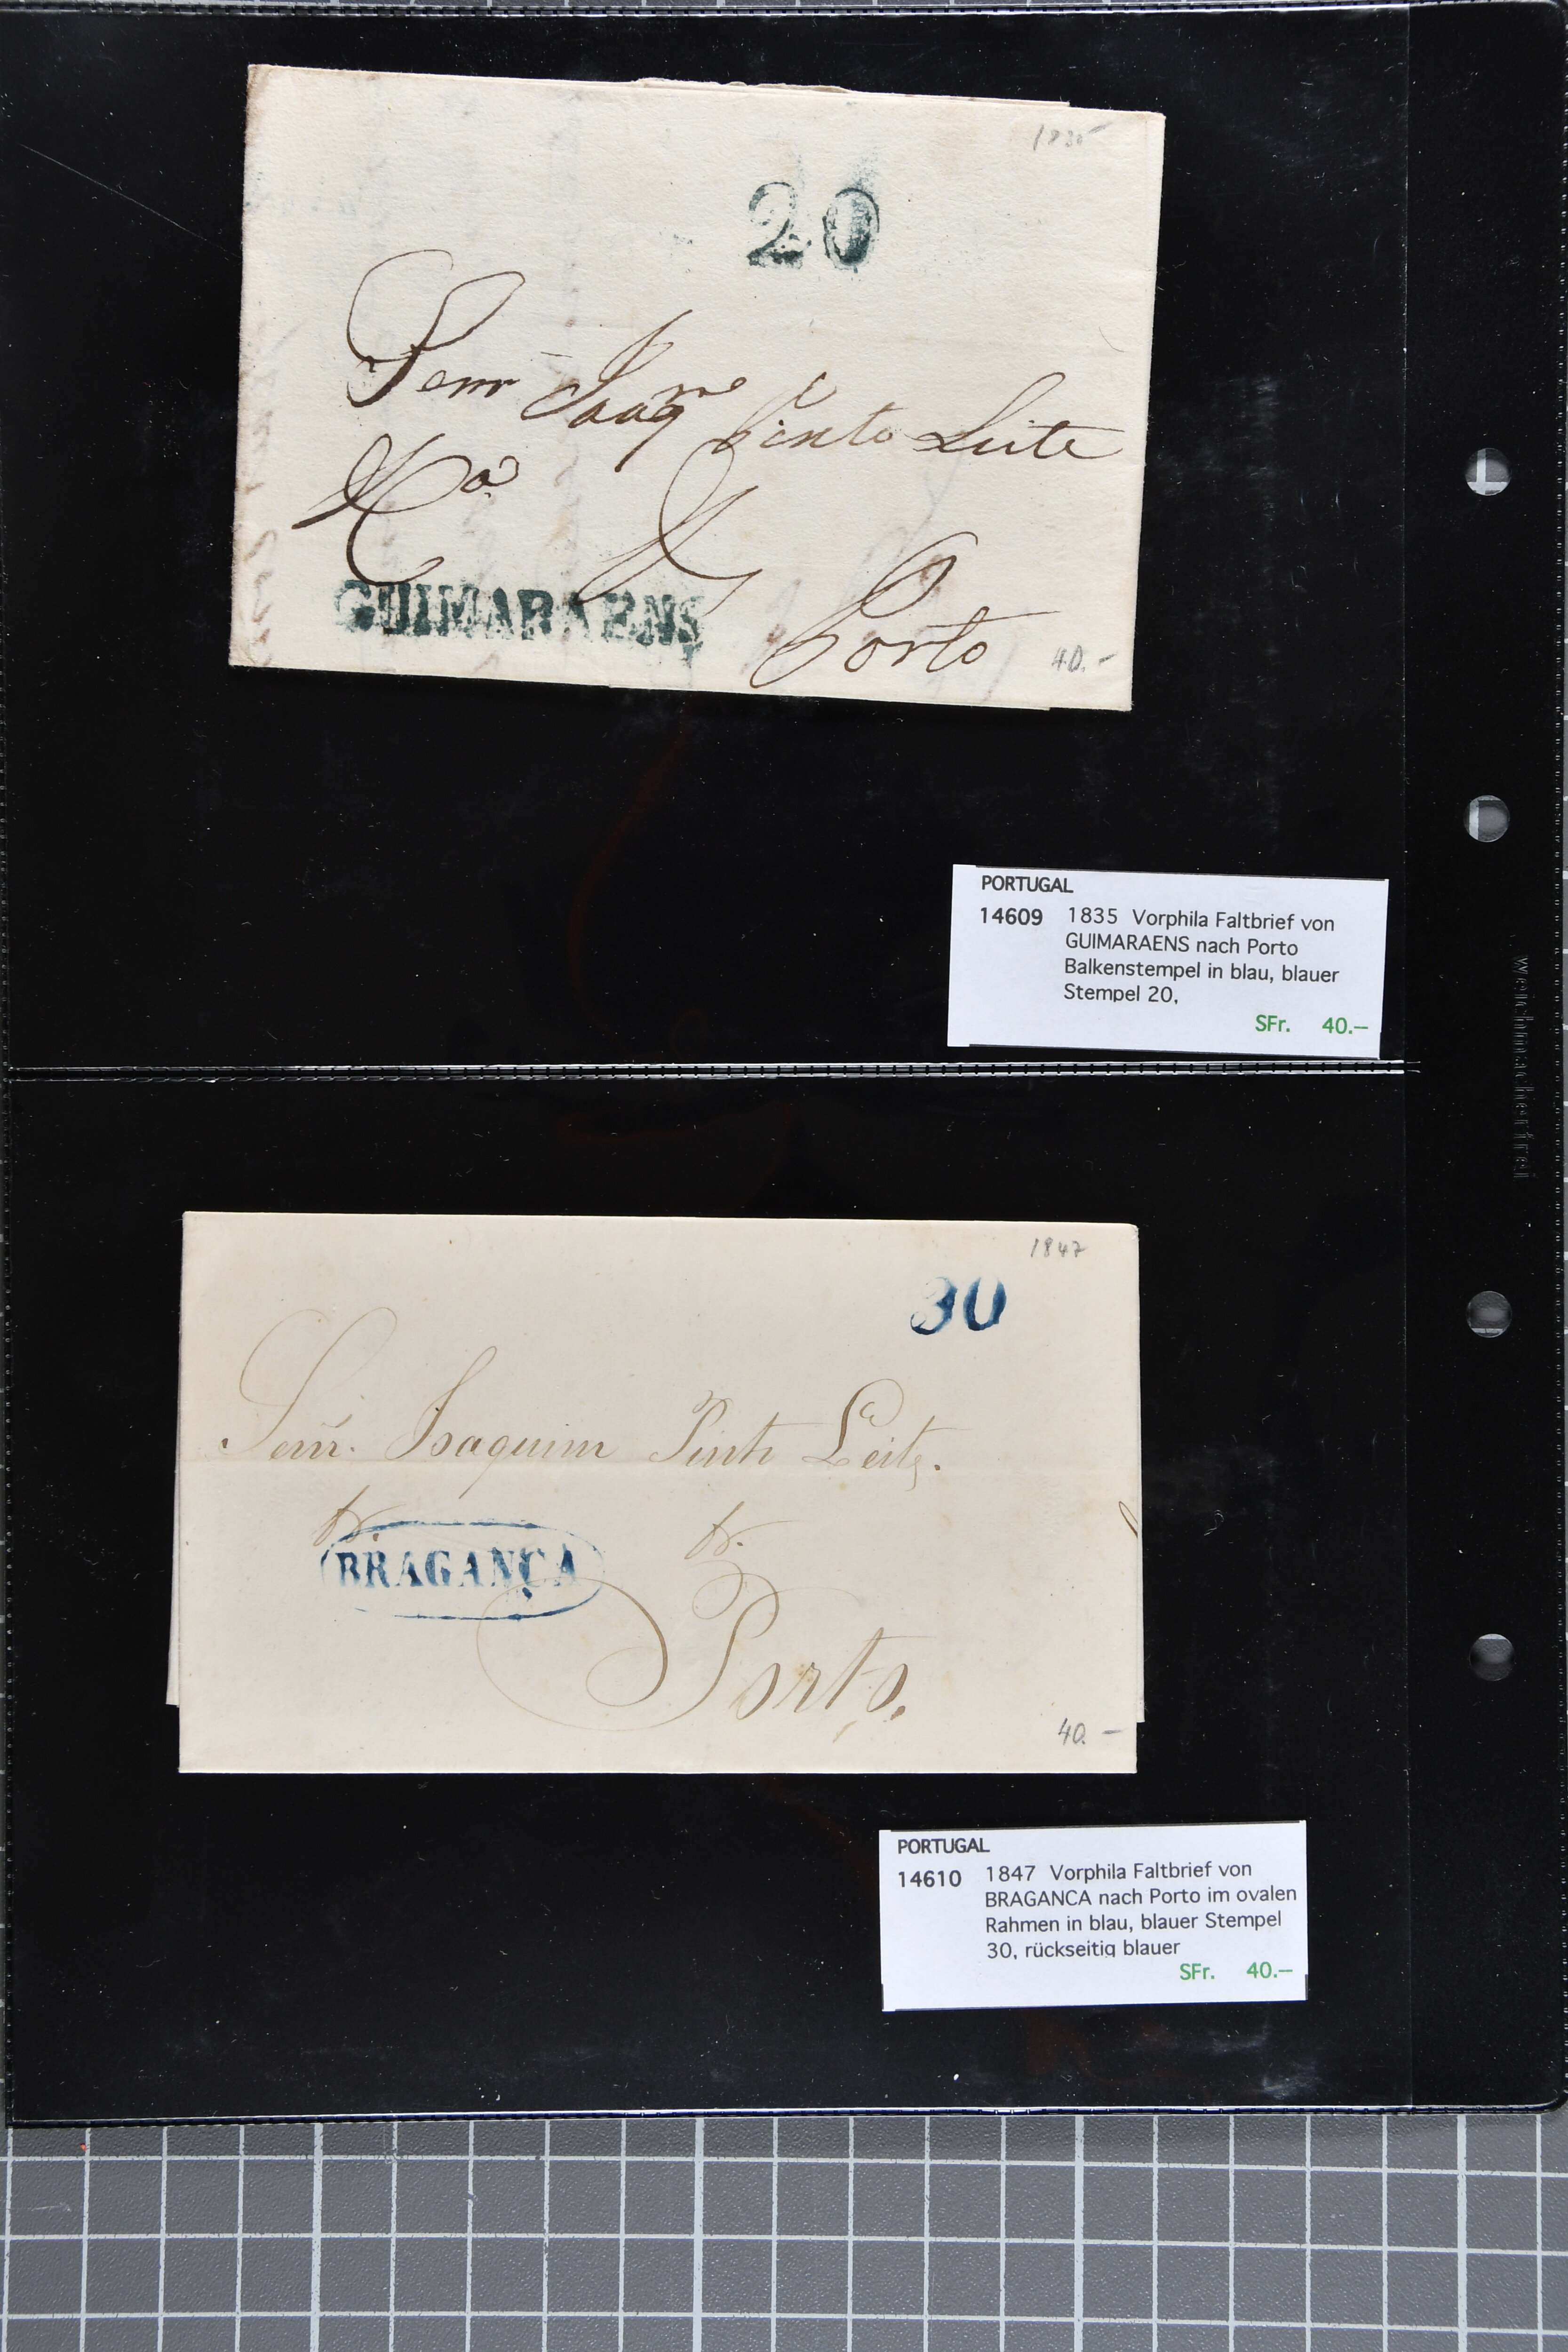 1835
20
Senr Joaqm Pinto Leite
GUIMARAENS
Porto
40.-
PORTUGAL
14609 1835 Vorphila Faltbrief von
GUIMARAENS nach Porto
Balkenstempel in blau, blauer
Stempel 20,
SFr. 40.—
weichmacherfrei
1847
30
Senr. Joaquim Pinto Leite.
BRAGANÇA
Porto.
40.-
PORTUGAL
14610 1847 Vorphila Faltbrief von
BRAGANCA nach Porto im ovalen
Rahmen in blau, blauer Stempel
30, rückseitig blauer
SFr. 40.—